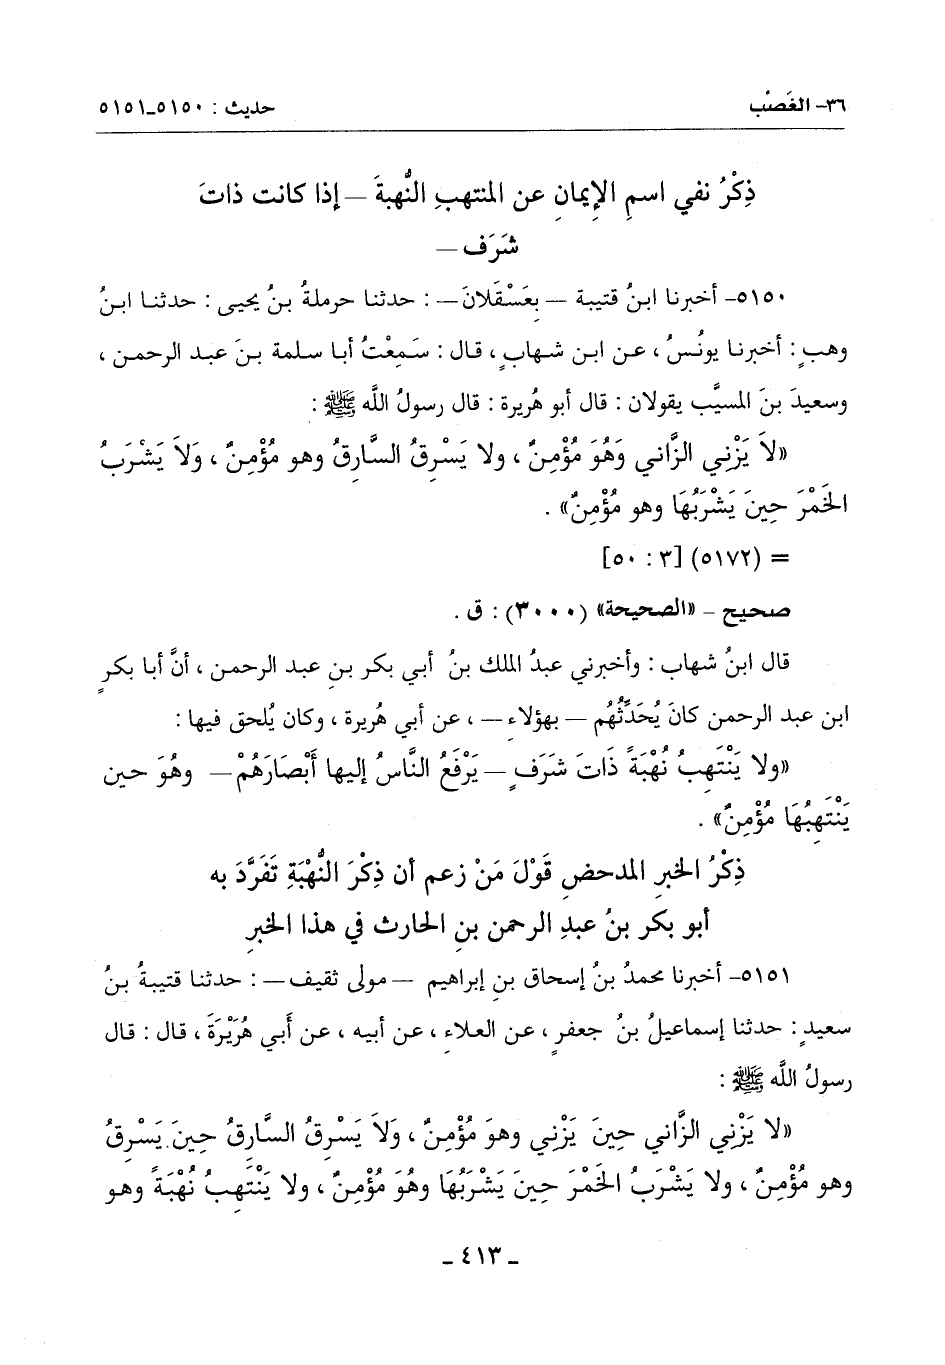 ٣٦- الغَصْب
حديث : ٥١٥٠ـ٥١٥١
ذِكْرُ نفي اسمِ الإِيمانِ عن المنتهبِ النُّهبةَ — إذا كانت ذاتَ
شَرَف —
٥١٥٠- أخبرنا ابنُ قتيبة — بِعَسْقَلانَ — : حدثنا حرملةُ بنُ يحيى : حدثنا ابنُ
وهبٍ : أخبرنا يونُسُ ، عن ابن شهابٍ ، قال : سَمِعْتُ أبا سلمة بنَ عبد الرحمن ،
وسعيدَ بنَ المسيَّب يقولان : قال أبو هُريرة : قال رسولُ اللَّه ﷺ :
«لاَ يَزْنِي الزَّاني وَهُوَ مُؤْمِنٌ ، ولا يَسْرِقُ السَّارِقُ وهو مُؤْمِنٌ ، وَلاَ يَشْرَبُ
الخَمْرَ حِينَ يَشْرَبُهَا وهو مُؤْمِنٌ» .
= (٥١٧٢) [٣ : ٥٠]
صحيح – «الصحيحة» (٣٠٠٠) : ق .
قال ابنُ شهاب : وأخبرني عبدُ الملك بنُ أبي بكر بنِ عبد الرحمن ، أنَّ أبا بكرٍ
ابن عبد الرحمن كانَ يُحَدِّثُهُم — بهؤلاءِ — ، عن أبي هُريرة ، وكان يُلحق فيها :
«ولا يَنْتَهِبُ نُهْبَةً ذَاتَ شَرَفٍ — يَرْفَعُ النَّاسُ إليها أَبْصَارَهُمْ — وهُوَ حين
يَنْتَهِبُهَا مُؤْمِنٌ» .
ذِكْرُ الخبرِ المدحضِ قَوْلَ مَنْ زعم أن ذِكْرَ النُّهْبَةِ تَفَرَّدَ به
أبو بكر بنُ عبدِ الرحمن بنِ الحارث في هذا الخبرِ
٥١٥١- أخبرنا محمدُ بنُ إسحاق بنِ إبراهيم — مولى ثقيف — : حدثنا قتيبةُ بنُ
سعيدٍ : حدثنا إسماعيلُ بنُ جعفرٍ ، عن العلاءِ ، عن أبيه ، عن أَبي هُرَيْرَةَ ، قال : قال
رسولُ اللَّه ﷺ :
«لا يَزْنِي الزَّاني حِينَ يَزْنِي وهوَ مُؤْمِنٌ ، وَلاَ يَسْرِقُ السَّارِقُ حِينَ يَسْرِقُ
وهو مُؤْمِنٌ ، ولا يَشْرَبُ الخَمْرَ حِينَ يَشْرَبُهَا وهُوَ مُؤْمِنٌ ، ولا يَنْتَهِبُ نُهْبَةً وهو
ـ ٤١٣ ـ